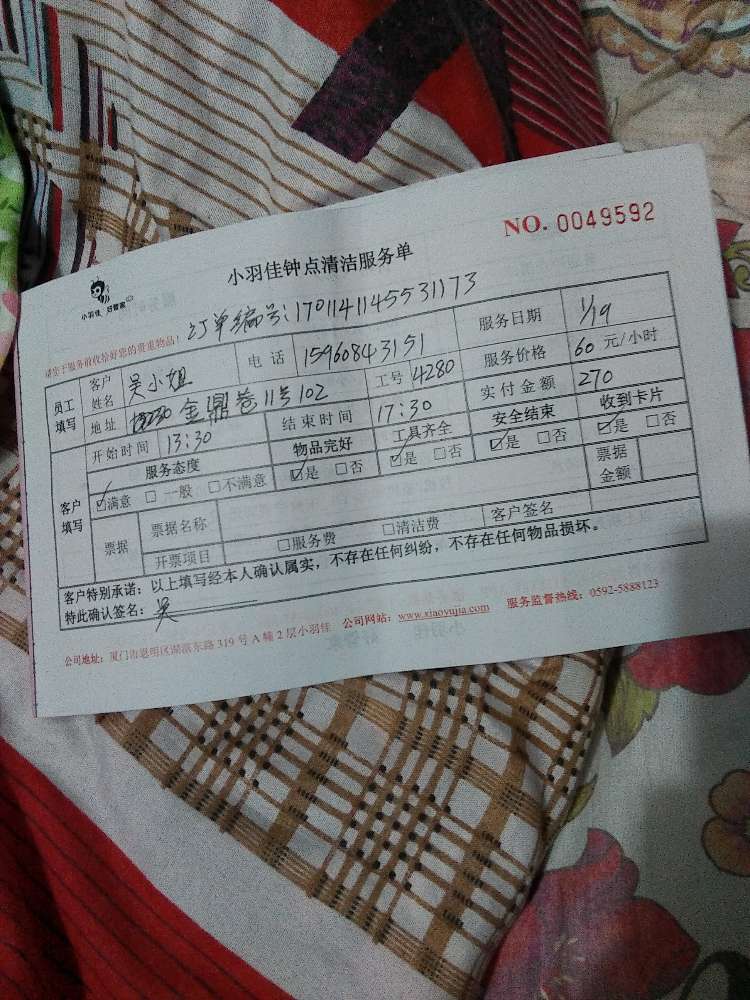 NO. 0049592
小羽佳 好管家
小羽佳钟点清洁服务单
请您于服务前收给好您的贵重物品！ 订单编号：1701141145531173
员工填写 客户姓名 吴小姐 电话 15960843151 服务日期 1/19
地址 金鼎巷11号102 工号 4280 服务价格 60 元/小时
开始时间 13:30 结束时间 17:30 实付金额 270
客户填写 服务态度 物品完好 工具齐全 安全结束 收到卡片
☑满意 □一般 □不满意 ☑是 □否 ☑是 □否 ☑是 □否 ☑是 □否
票据 票据名称 票据金额
开票项目 □服务费 □清洁费 客户签名
客户特别承诺：以上填写经本人确认属实，不存在任何纠纷，不存在任何物品损坏。
特此确认签名：吴
公司地址：厦门市思明区湖滨东路 319 号 A 幢 2 层小羽佳 公司网站：www.xiaoyujia.com 服务监督热线：0592-5888123